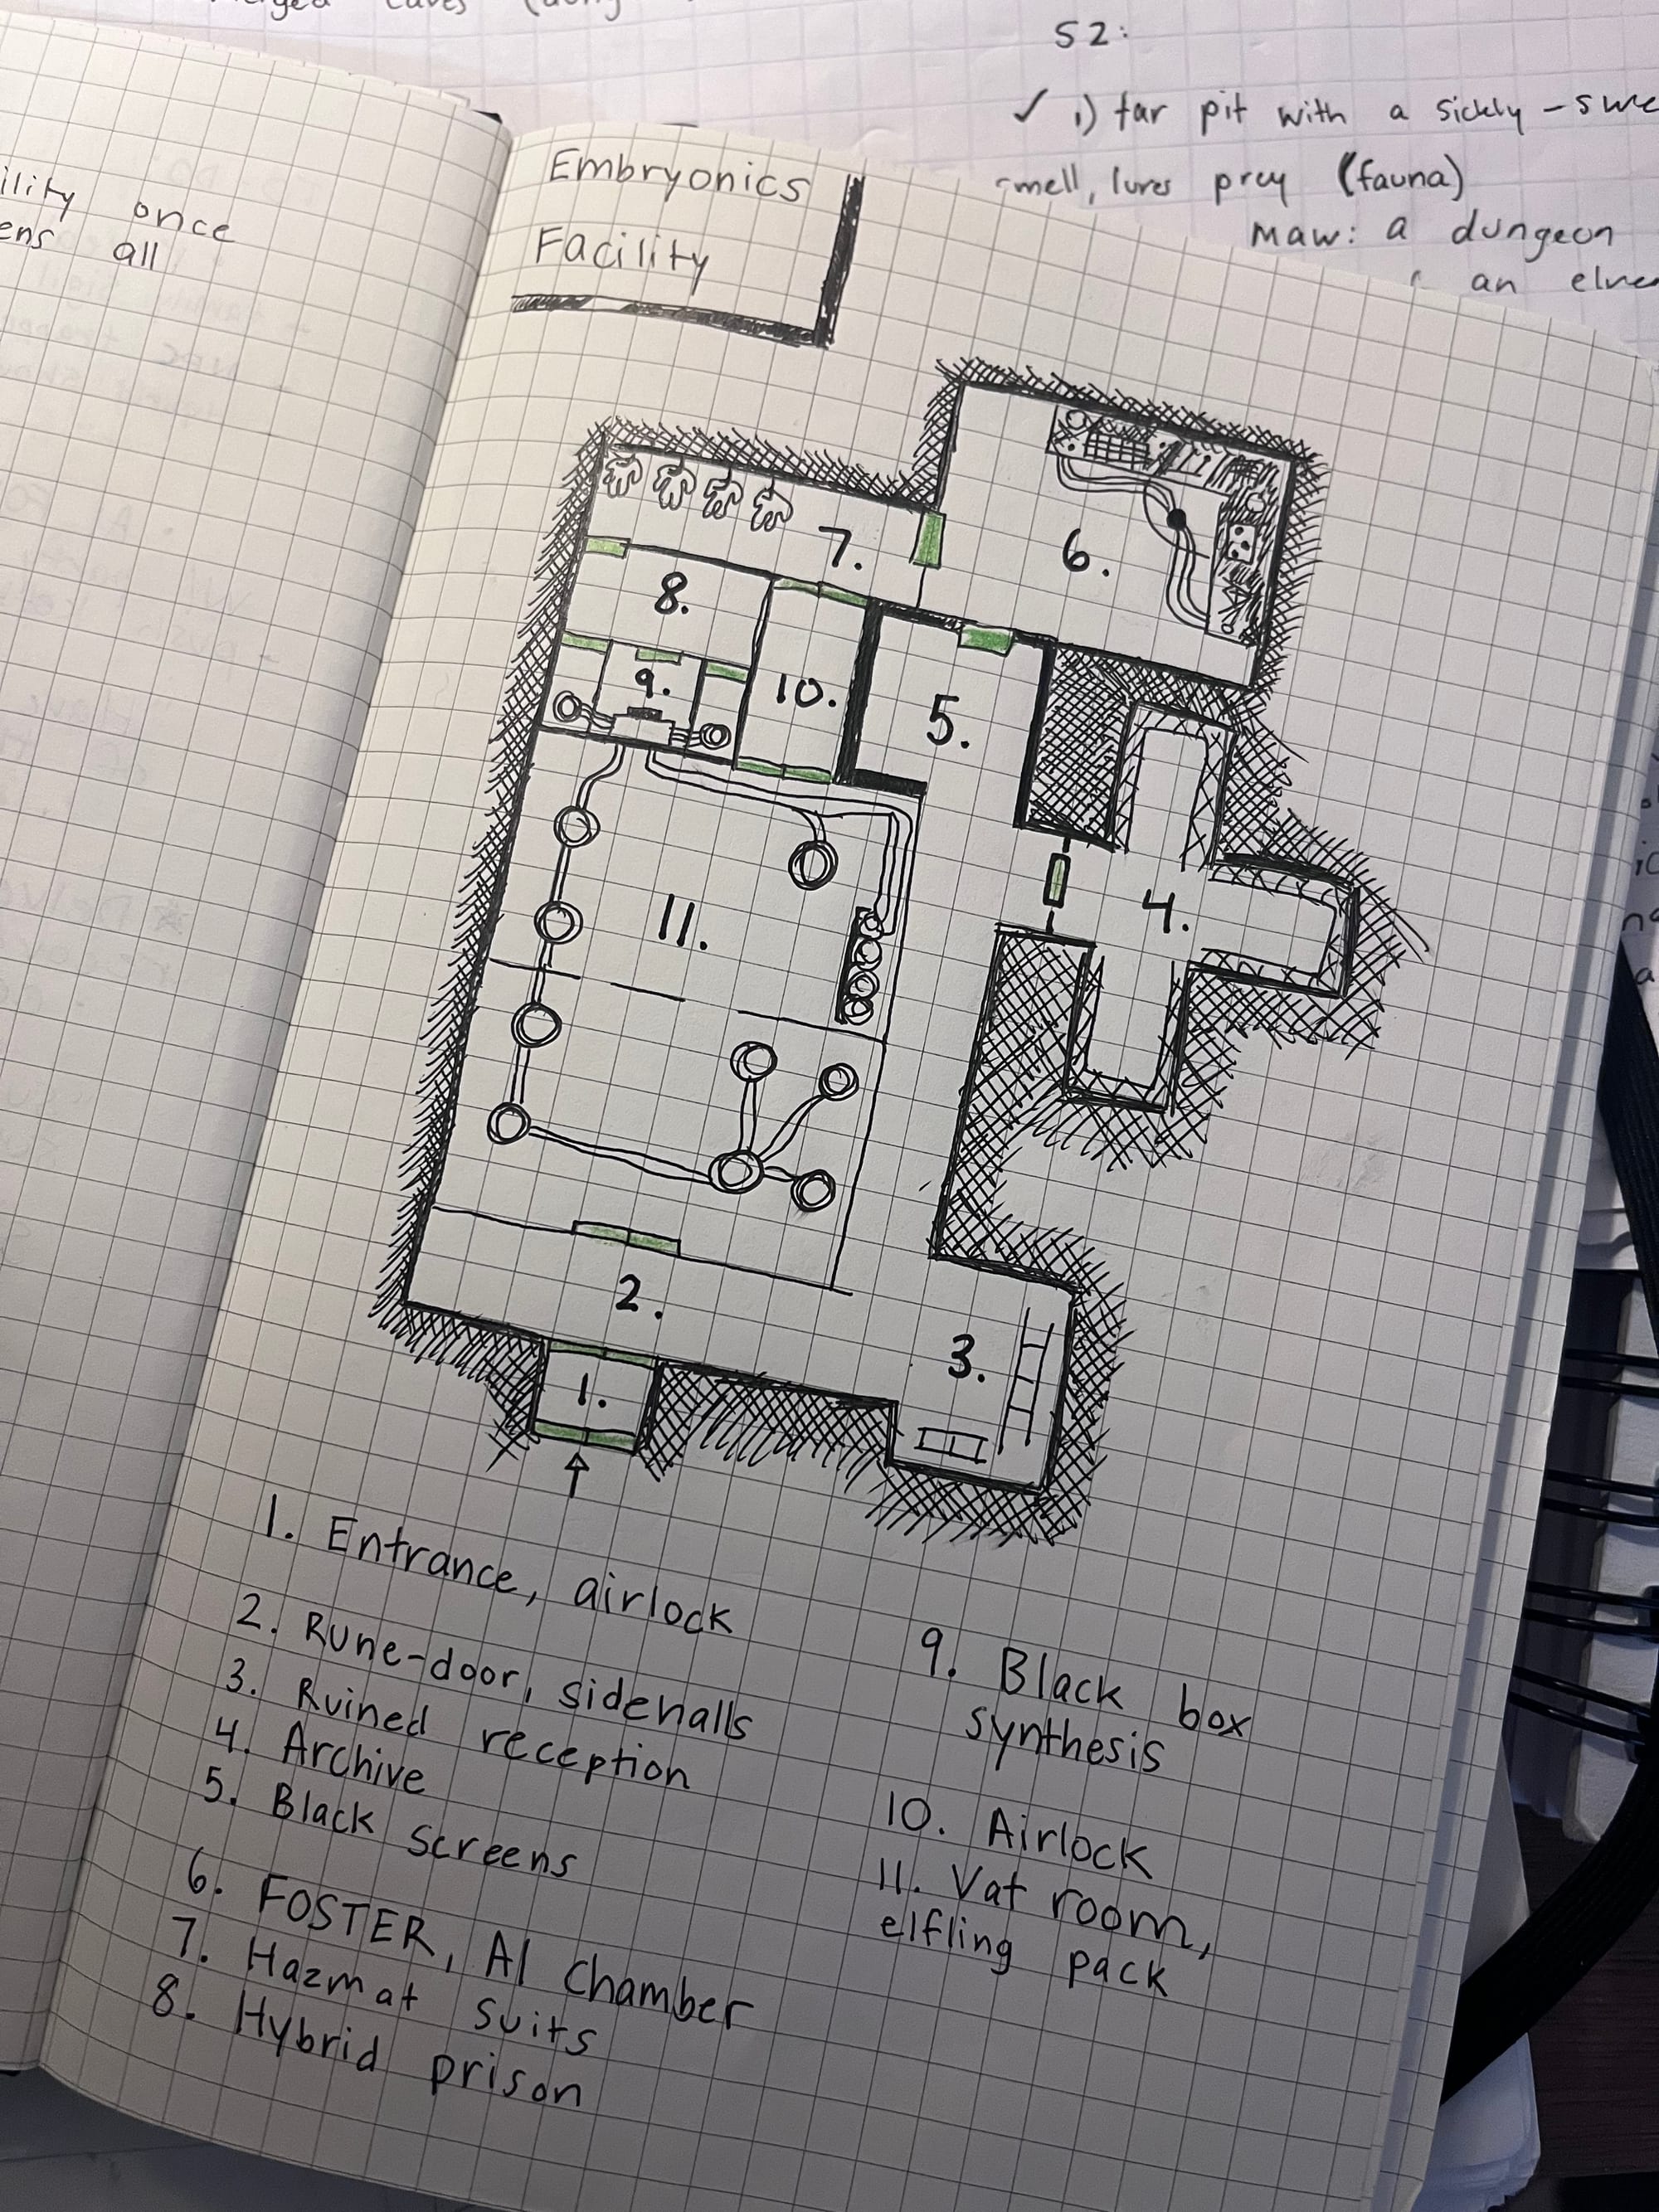 S2:
✓ 1) tar pit with a sickly -
smell, lures prey (fauna)
maw: a dungeon
an
once
all
Embryonics
Facility
7.
6.
8.
9.
10.
5.
11.
4.
2.
3.
1.
1. Entrance, airlock
2. Rune-door, sidehalls
3. Ruined reception
4. Archive
5. Black screens
6. FOSTER, AI chamber
7. Hazmat suits
8. Hybrid prison
9. Black box
synthesis
10. Airlock
11. Vat room,
elfling pack